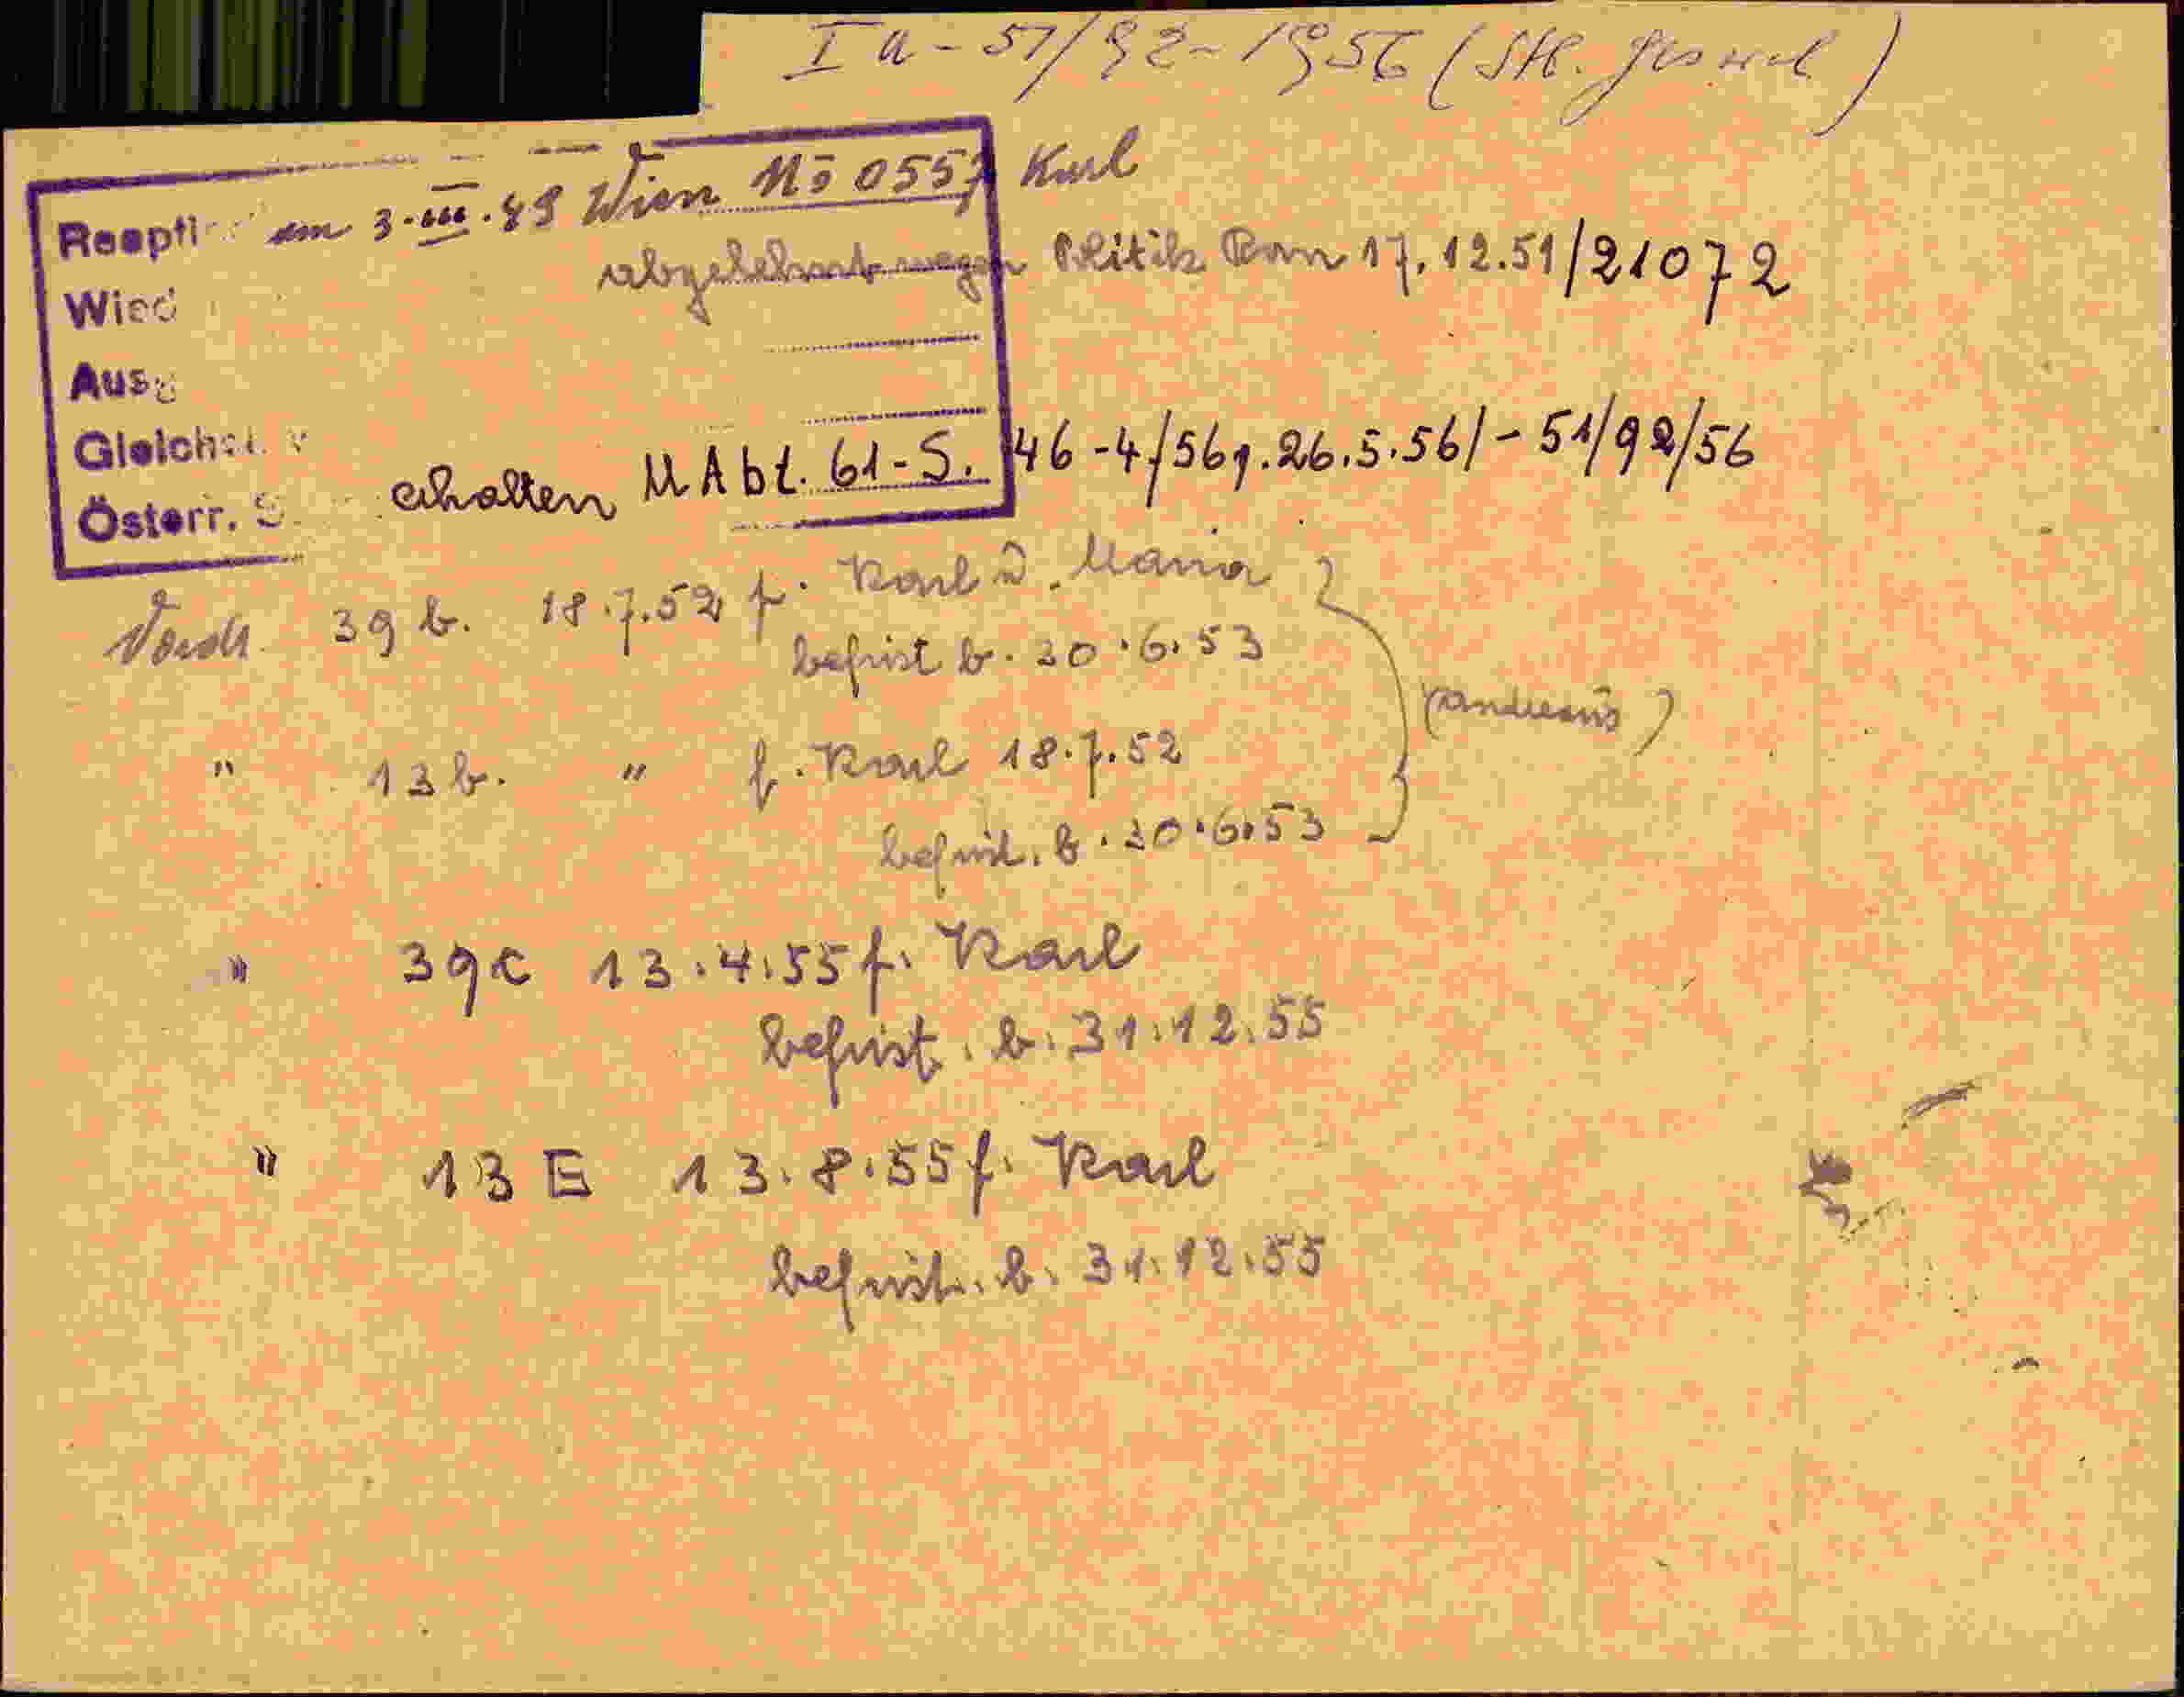 I a - 51/92-1956 (Stb.
Reopti am 3.III.49 Wien Nö 0557 Karl
Wied abgelehnt wegen Politik Rom 17.12.51/21072
Ausg
Gleichst. v
Österr. S. erhalten M Abt. 61-S. 46-4/56, v. 26.5.56/-51/92/56
Vordr. 39 b. 18.7.52 f. Karl u. Maria
befrist b. 30.6.53
" 13 b. " f. Karl 18.7.52
befrist. b. 30.6.53
" 39c 13.4.55 f. Karl
befrist. b. 31.12.55
" 13 E 13.8.55 f. Karl
befrist. b. 31.12.55